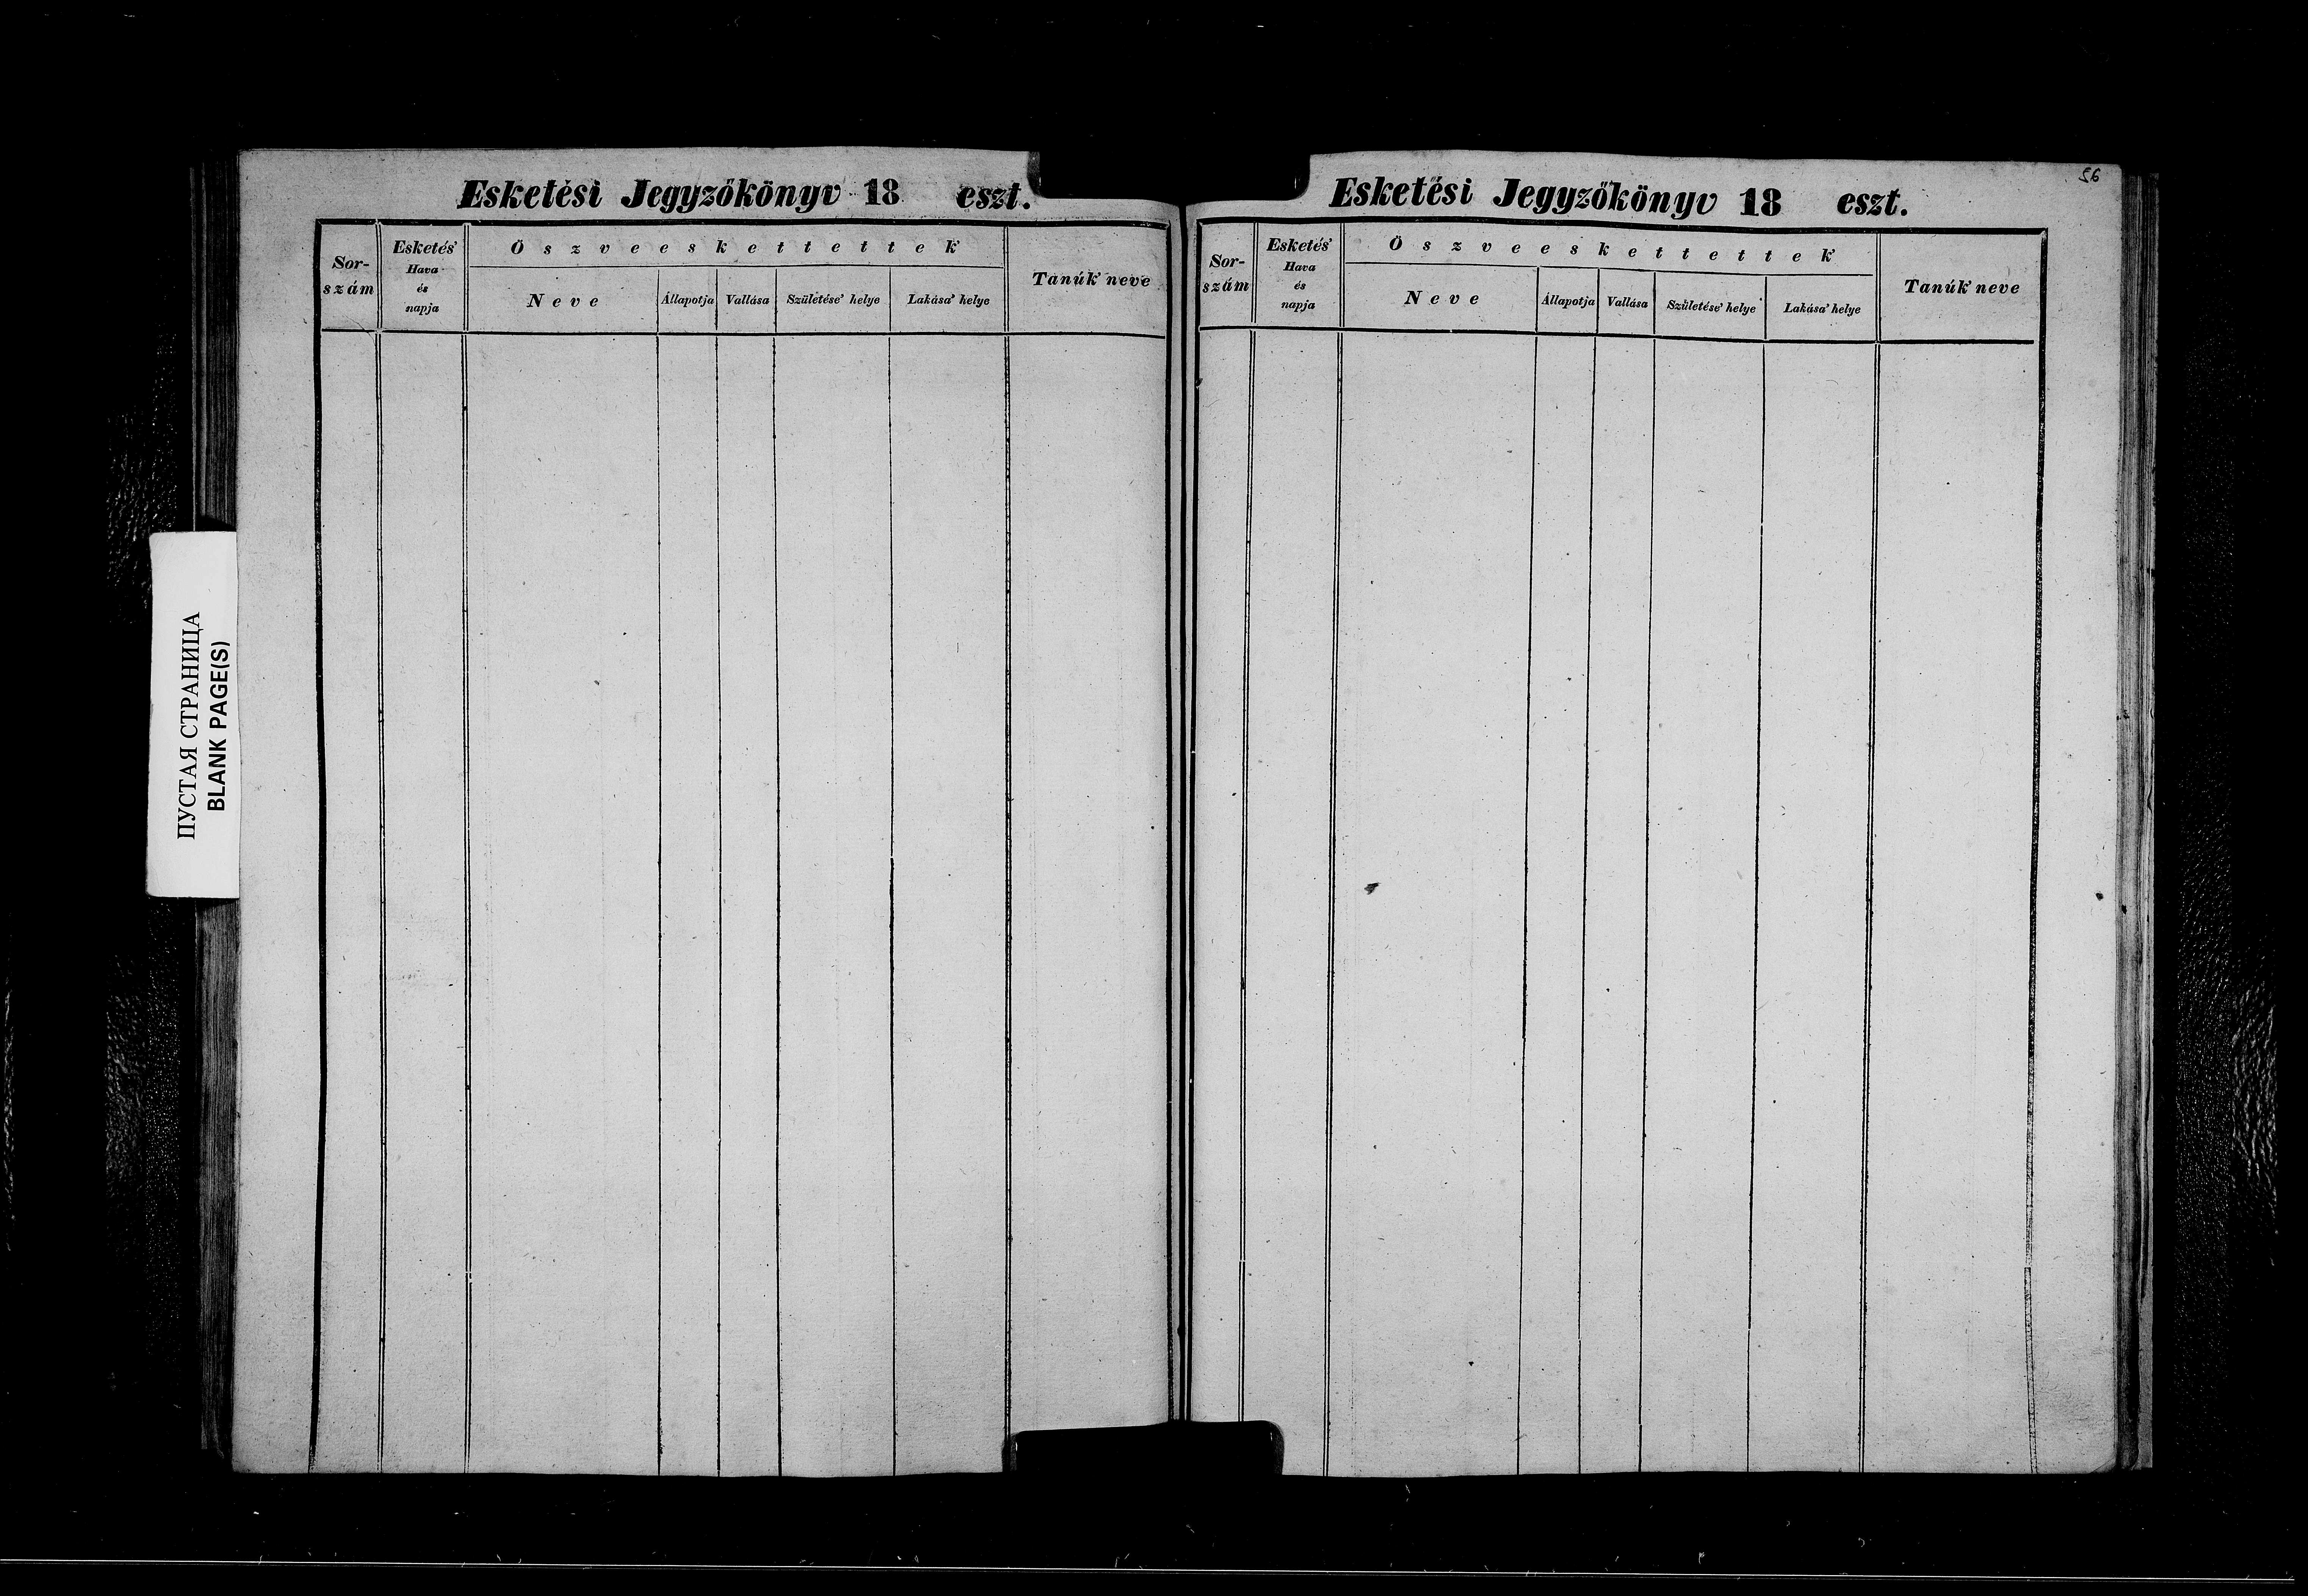 ПУСТАЯ СТРАНИЦА
BLANK PAGE(S)
Esketési Jegyzőkönyv 18 eszt.
Sor-
szám
Esketés'
Hava
és
napja
Öszveeskettettek
Neve
Állapotja
Vallása
Születése' helye
Lakása' helye
Tanúk' neve
56
Esketési Jegyzőkönyv 18 eszt.
Sor-
szám
Esketés'
Hava
és
napja
Öszveeskettettek
Neve
Állapotja
Vallása
Születése' helye
Lakása' helye
Tanúk' neve